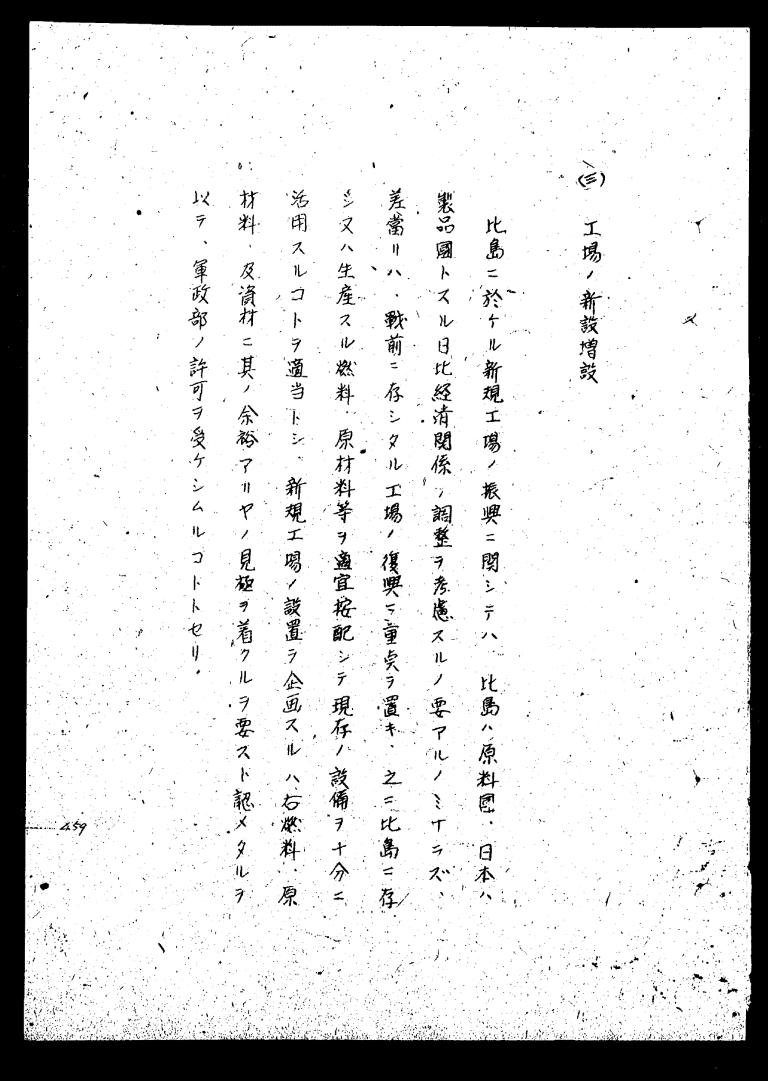 (三) 工場ノ新設増設
比島ニ於ケル新規工場ノ振興ニ関シテハ、比島ハ原料國、日本ハ
製品國トスル日比経済関係ノ調整ヲ考慮スルノ要アルノミナラズ、
差當リハ、戦前ニ存シタル工場ノ復興ニ重点ヲ置キ、之ニ比島ニ存
シ又ハ生産スル燃料、原材料等ヲ適宜按配シテ現存ノ設備ヲ十分ニ
活用スルコトヲ適当トシ、新規工場ノ設置ヲ企画スルハ右燃料、原
材料、及資材ニ其ノ余裕アリヤノ見極ヲ着クルヲ要スト認メタルヲ
以テ、軍政部ノ許可ヲ受ケシムルコトトセリ。
459